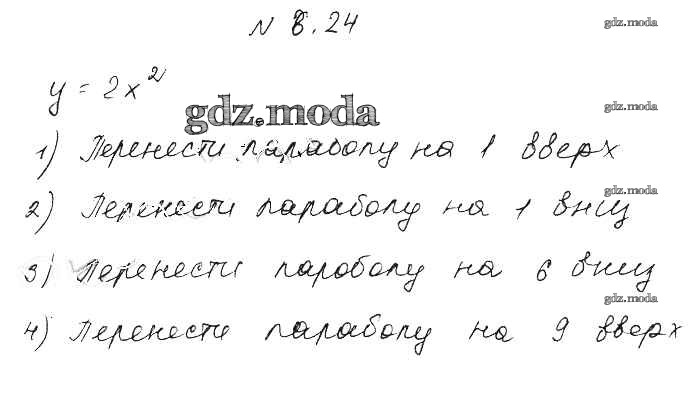 N 8.24
gdz.moda
y = 2x²
gdz.moda
gdz.moda
1) Перенести параболу на 1 вверх
gdz.moda
2) Перенести параболу на 1 вниз
3) Перенести паробопу на 6 вниз
gdz.moda
4) Перенести параболу на 9 вверх